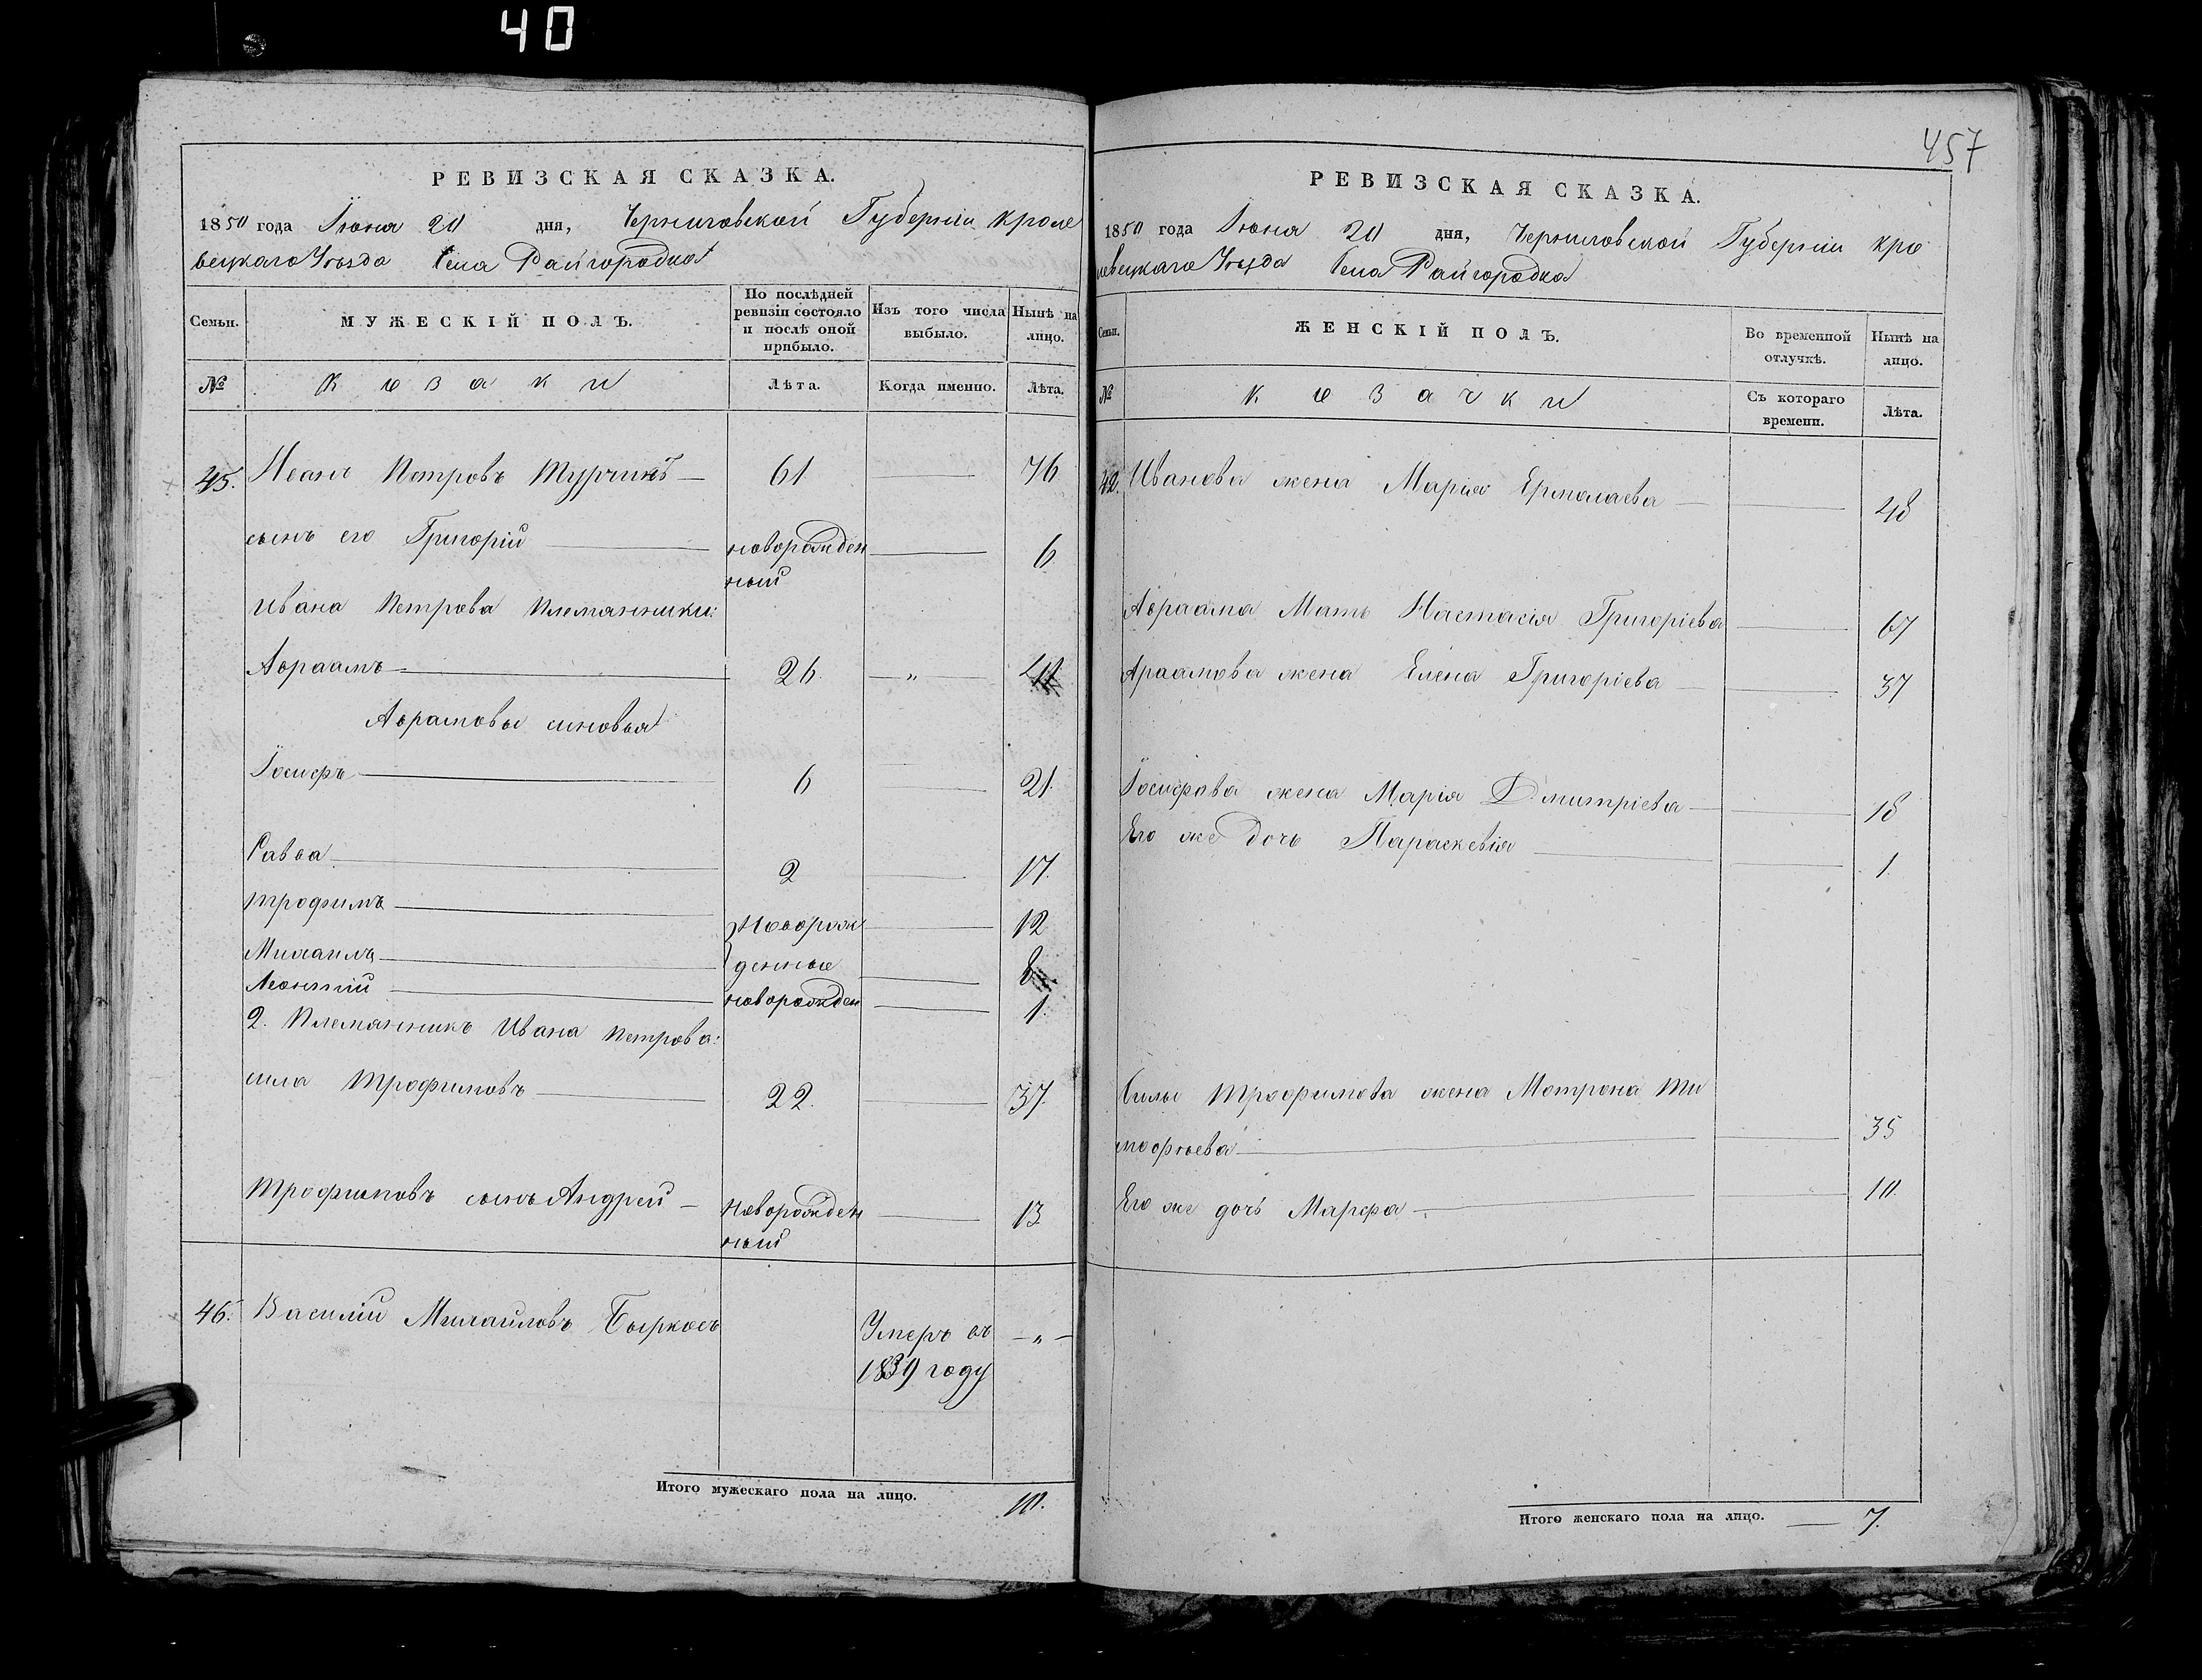 40
РЕВИЗСКАЯ СКАЗКА.
1850 года Іюня 20 дня, Черниговской Губерніи Кроле
вецкаго Уѣзда Села Райгородка
Семьи.
МУЖЕСКІЙ ПОЛЪ.
По послѣдней ревизіи состояло и послѣ оной прибыло.
Изъ того числа выбыло.
Нынѣ на лицо.
№
Козаки
Лѣта.
Когда именно.
Лѣта.
45. Иванъ Петровъ Турчинъ — 61 — 76
сынъ его Григорій — новорожден — 6
ный
Ивана Петрова племянники:
Авраамъ — 26. — „ — 41
Аврамовы синовья
Іосифъ — 6 — 21.
Савва — 2 — 17.
Трофимъ — Новорож — 12
Михаилъ — денные — 8
Леонтій — новорожден — 1.
2. Племянникъ Ивана Петрова:
Сила Трофимовъ — 22. — 37.
Трофимовъ сынъ Андрей — Новорожден — 13
ный
46. Василій Михайловъ Бырковъ Умеръ въ — „ —
1839 году
Итого мужескаго пола на лицо. 10.
457
РЕВИЗСКАЯ СКАЗКА.
1850 года Іюня 20 дня, Черниговской Губерніи Кро
левецкаго Уѣзда Села Райгородка
Семьи.
ЖЕНСКІЙ ПОЛЪ.
Во временной отлучкѣ.
Нынѣ на лицо.
№
Козачки
Съ котораго времени.
Лѣта.
Иванова жена Марія Ермолаева — 48
Авраама Мать Настасія Григоріева — 67
Араамова жена Елена Григоріева — 37
Іосифова жена Марія Дмитріева — 18
Его же дочь Параскевія — 1.
Силы Трофимова жена Мотрона Ти
мофѣева — 35
Его же дочь Марфа — 10.
Итого женскаго пола на лицо. — 7.